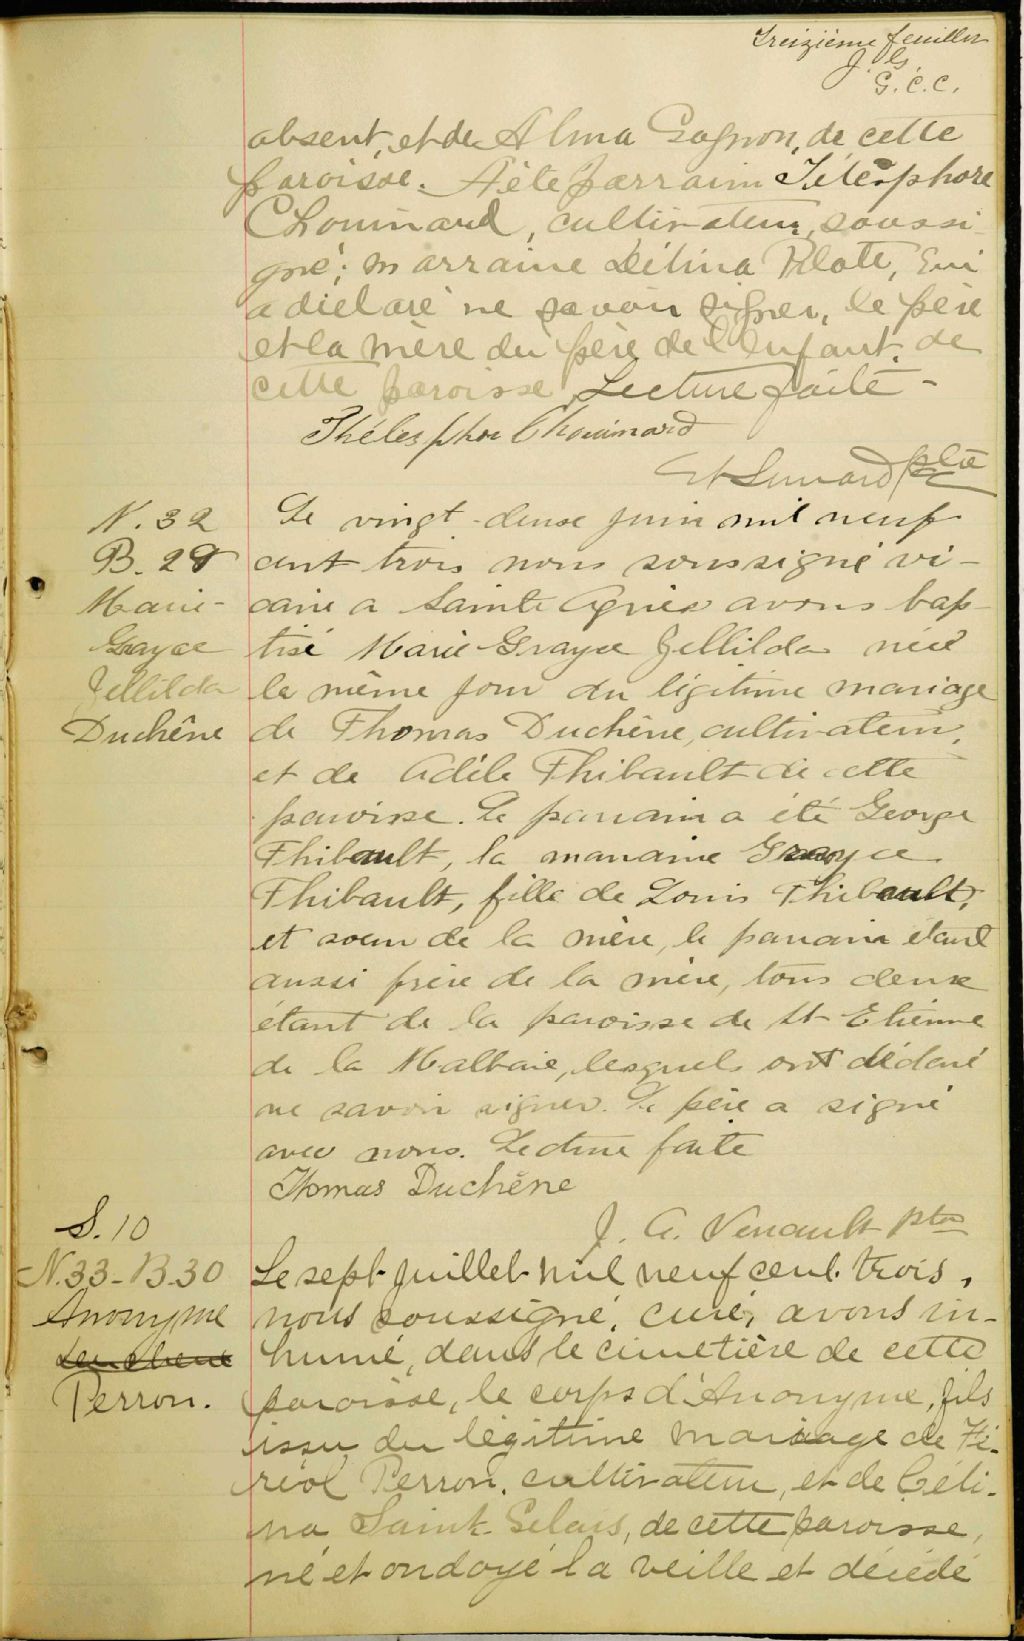 Treizième feuillet
G.C.C.
absent, et de Alma Gagnon, de cette
paroisse. A été parrain Télesphore
Chouinard, cultivateur, soussi-
gné; marraine Délina Pilote, qui
a déclaré ne savoir signer, le père
et la mère du père de l'enfant, de
cette paroisse. Lecture faite -
Thélesphor Chouinard
ptre
N. 32
B. 29
Marie-
Grayce
Jellilda
Duchêne
Le vingt-deux juin mil neuf
cent trois nous soussigné vi-
caire a Sainte Agnès avons bap-
tisé Marie Grayce Jellilda née
le même jour du légitime mariage
de Thomas Duchêne, cultivateur,
et de Adèle Thibault de cette
paroisse. Le parrain a été George
Thibault, la marraine Grayce
Thibault, fille de Louis Thibault,
et soeur de la mère, le parrain étant
aussi frère de la mère, tous deux
étant de la paroisse de St Etienne
de la Malbaie, lesquels ont déclaré
ne savoir signer. Le père a signé
avec nous. Lecture faite
Thomas Duchêne
J. A. Verrault ptre
S. 10
N. 33 - B. 30
Anonyme
Perron.
Le sept juillet mil neuf cent trois,
nous soussigné, curé, avons in-
humé, dans le cimetière de cette
paroisse, le corps d'Anonyme, fils
issu du légitime mariage de Fé-
réol Perron, cultivateur, et de Céli-
na Saint-Gelais, de cette paroisse,
né et ondoyé la veille et décédé